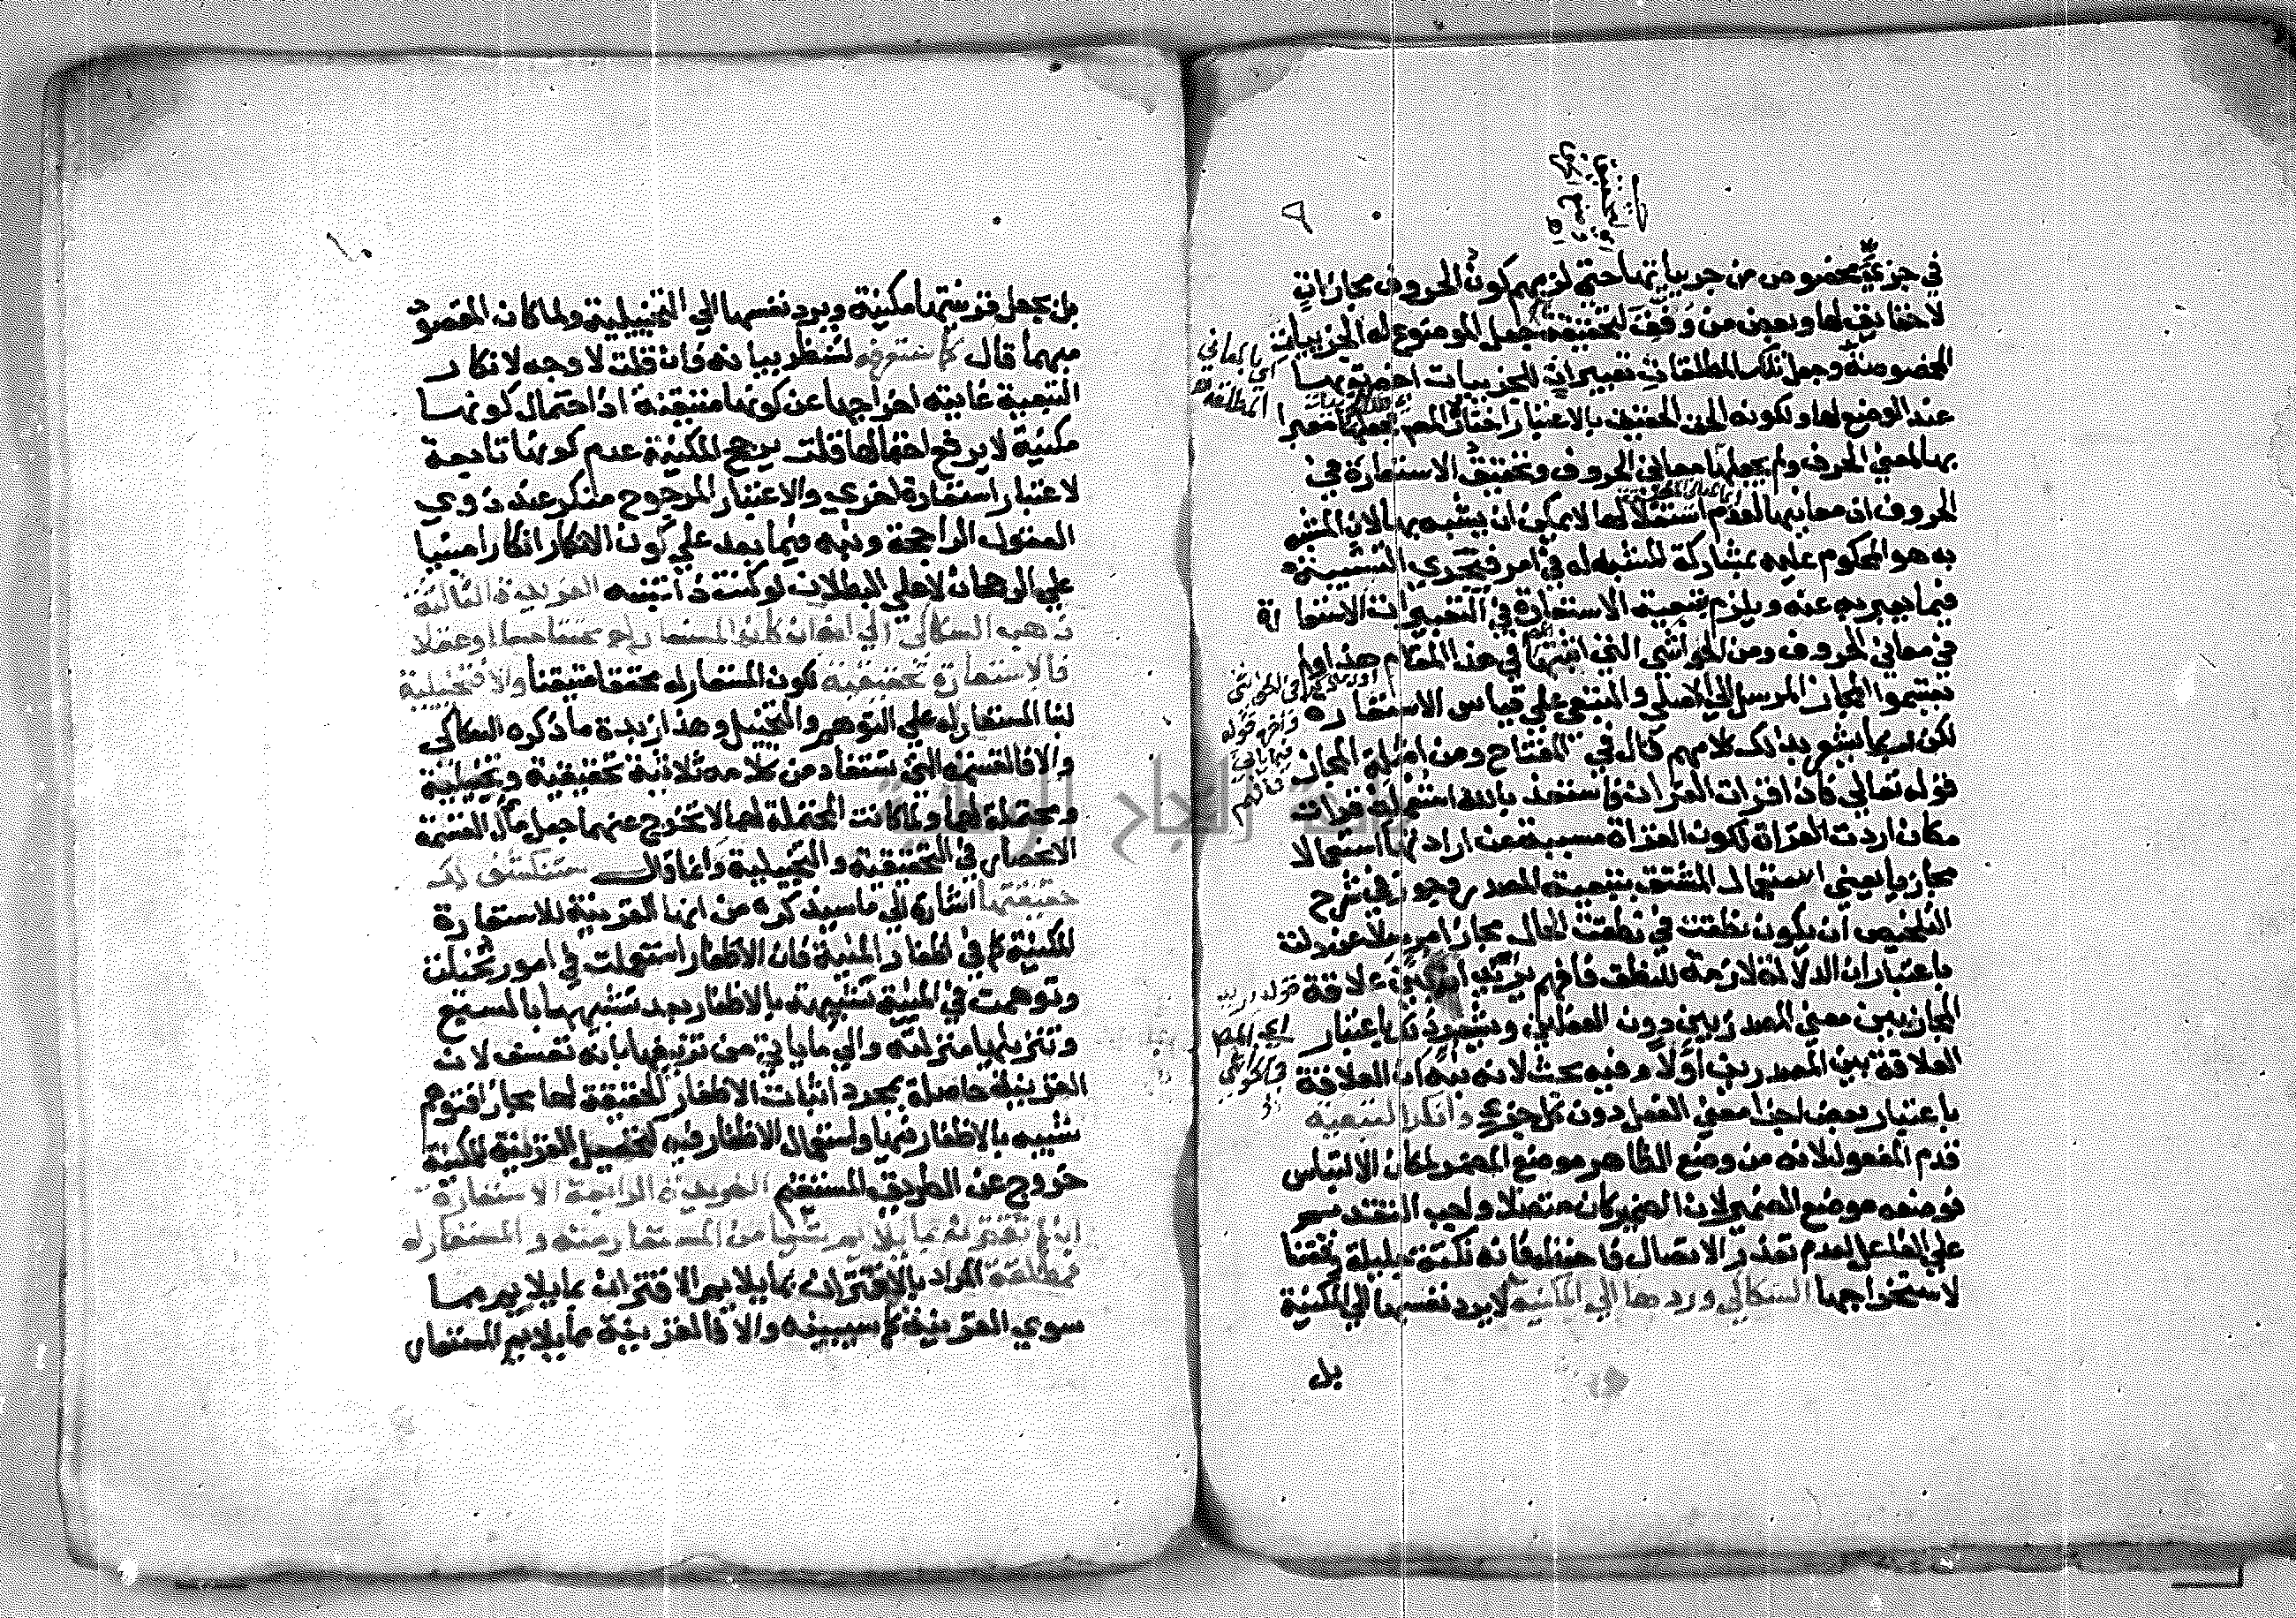 في جزئي مخصوص من جزيياتها حتى لزمهم كون الحروف مجازات
لا حقايق لها وبعض من وفق لتحقيقه جعل الموضوع له الجزييات
المخصوصة وجعل تلك المطلقات تعبيرات للجزييات احضرتها
عند الوضع لها ولكونه الحق الحقيق بالاعتبار اختار المص جعلها معبرا
بها لمعنى الحرف ولم يجعلها معاني الحروف وتحقيق الاستعارة في
الحروف ان معانيها لعدم استقلالها لا يمكن ان يشبه بها لان المشبه
به هو المحكوم عليه بمشاركة المشبه له في امر فتجري التشبيه
فيما يعبر به عنه ويلزم بتبعية الاستعارة في التعبيرات الاستعارة
في معاني الحروف ومن الحواشي التي اثبتها في هذا المقام هذا ولم
يقسموا المجاز المرسل الى الاصلي والتبعي على قياس الاستعاره
لكن ربما يشعر بذلك كلامهم قال في المفتاح ومن امثلة المجاز
قوله تعالى فاذا قرات القران فاستعذ بالله استعملت قرات
مكان اردت القراة لكون القراة مسببة عن ارادتها استعمالا
مجازيا يعني استعمال المشتق بتبعية المصدر وجوز في شرح
التلخيص ان يكون نطقت في نطقت الحال مجازا مرسلا عن دلت
باعتبار ان الدلالة لازمة للنطق فافهم علاقة
المجاز بين معنى المصدريين دون الفعلين باعتبار
العلاقة بين المصدرين اولا وفيه بحث لانه نبه ان العلاقة
باعتبار بعض اجزا معنى الفعل دون كل جزء وانكر التبعية
قدم المفعول لانه من وضع الظاهر موضع المضمر لمكان الالتباس
فوضعه موضع الضمير لان الضمير كان متصلا واجب التقديم
على الفاعل لعدم تعذر الاتصال فاحفظها فانه نكتة جليلة وفقنا
لاستخراجها السكاكي وردها الى المكنية لا يرد نفسها الى المكنية
بل
بل يجعل قرينتها مكنية ويرد نفسها الى التخييلية ولما كان المقصود
مبهما قال كما ستعرفه لتنظر بيانه فان قلت لا وجه لانكار
التبعية غايته اخراجها عن كونها متيقنة اذ احتمال كونها
مكنية لا يرفع احتمالها قلت يرجح المكنية عدم كونها تابعة
لاعتبار استعارة اخرى والاعتبار المرجوح منكر عند ذوي
العقول الراجحة ونبه فيما بعد على كون الانكار انكارا مبنيا
على الرجحان لا على البطلان لو كنت ذا تنبه الفريدة الثالثة
ذهب السكاكي الى انه ان كان المستعار له محققا حسا او عقلا
فالاستعارة تحقيقية لكون المستعار له محققا متيقنا والا فتخييلية
لبنا المستعار له على التوهم والتخييل وهذا زبدة ما ذكره السكاكي
والا فالقسمة التي تستفاد من كلامه ثلاثية تحقيقية وتخييلية
ومحتملة لهما ولما كانت المحتملة لهما لا تخرج عنهما جعل مآل القسمة
الانحصار في التحقيقية والتخييلية وانما قال ستنكشف لك
حقيقتها اشارة الى ما سيذكره من انها القرينة للاستعارة
المكنية كما في اظفار المنية فان الاظفار استعملت في امور تخيلت
وتوهمت في المنية تشبيهة بالاظفار بعد تشبيهها بالسبع
وتنزيلها منزلته والى ما ياتي من تزييفها بانه تعسف لان
القرينة حاصلة بمجرد اثبات الاظفار الحقيقة لها مجازا فتوهم
شبيه بالاظفار فيها واستعمال الاظفار فيه لتحصيل القرينة للمكنية
خروج عن الطريق المستقيم الفريدة الرابعة الاستعارة
ان لم تقترن بما يلايم شيئا من المستعار منه والمستعار له
فمطلقة المراد بالاقتران بما يلايم الاقتران بما يلايم مما
سوى القرينة كما سيبينه والا فالقرينة مما يلايم المستعار